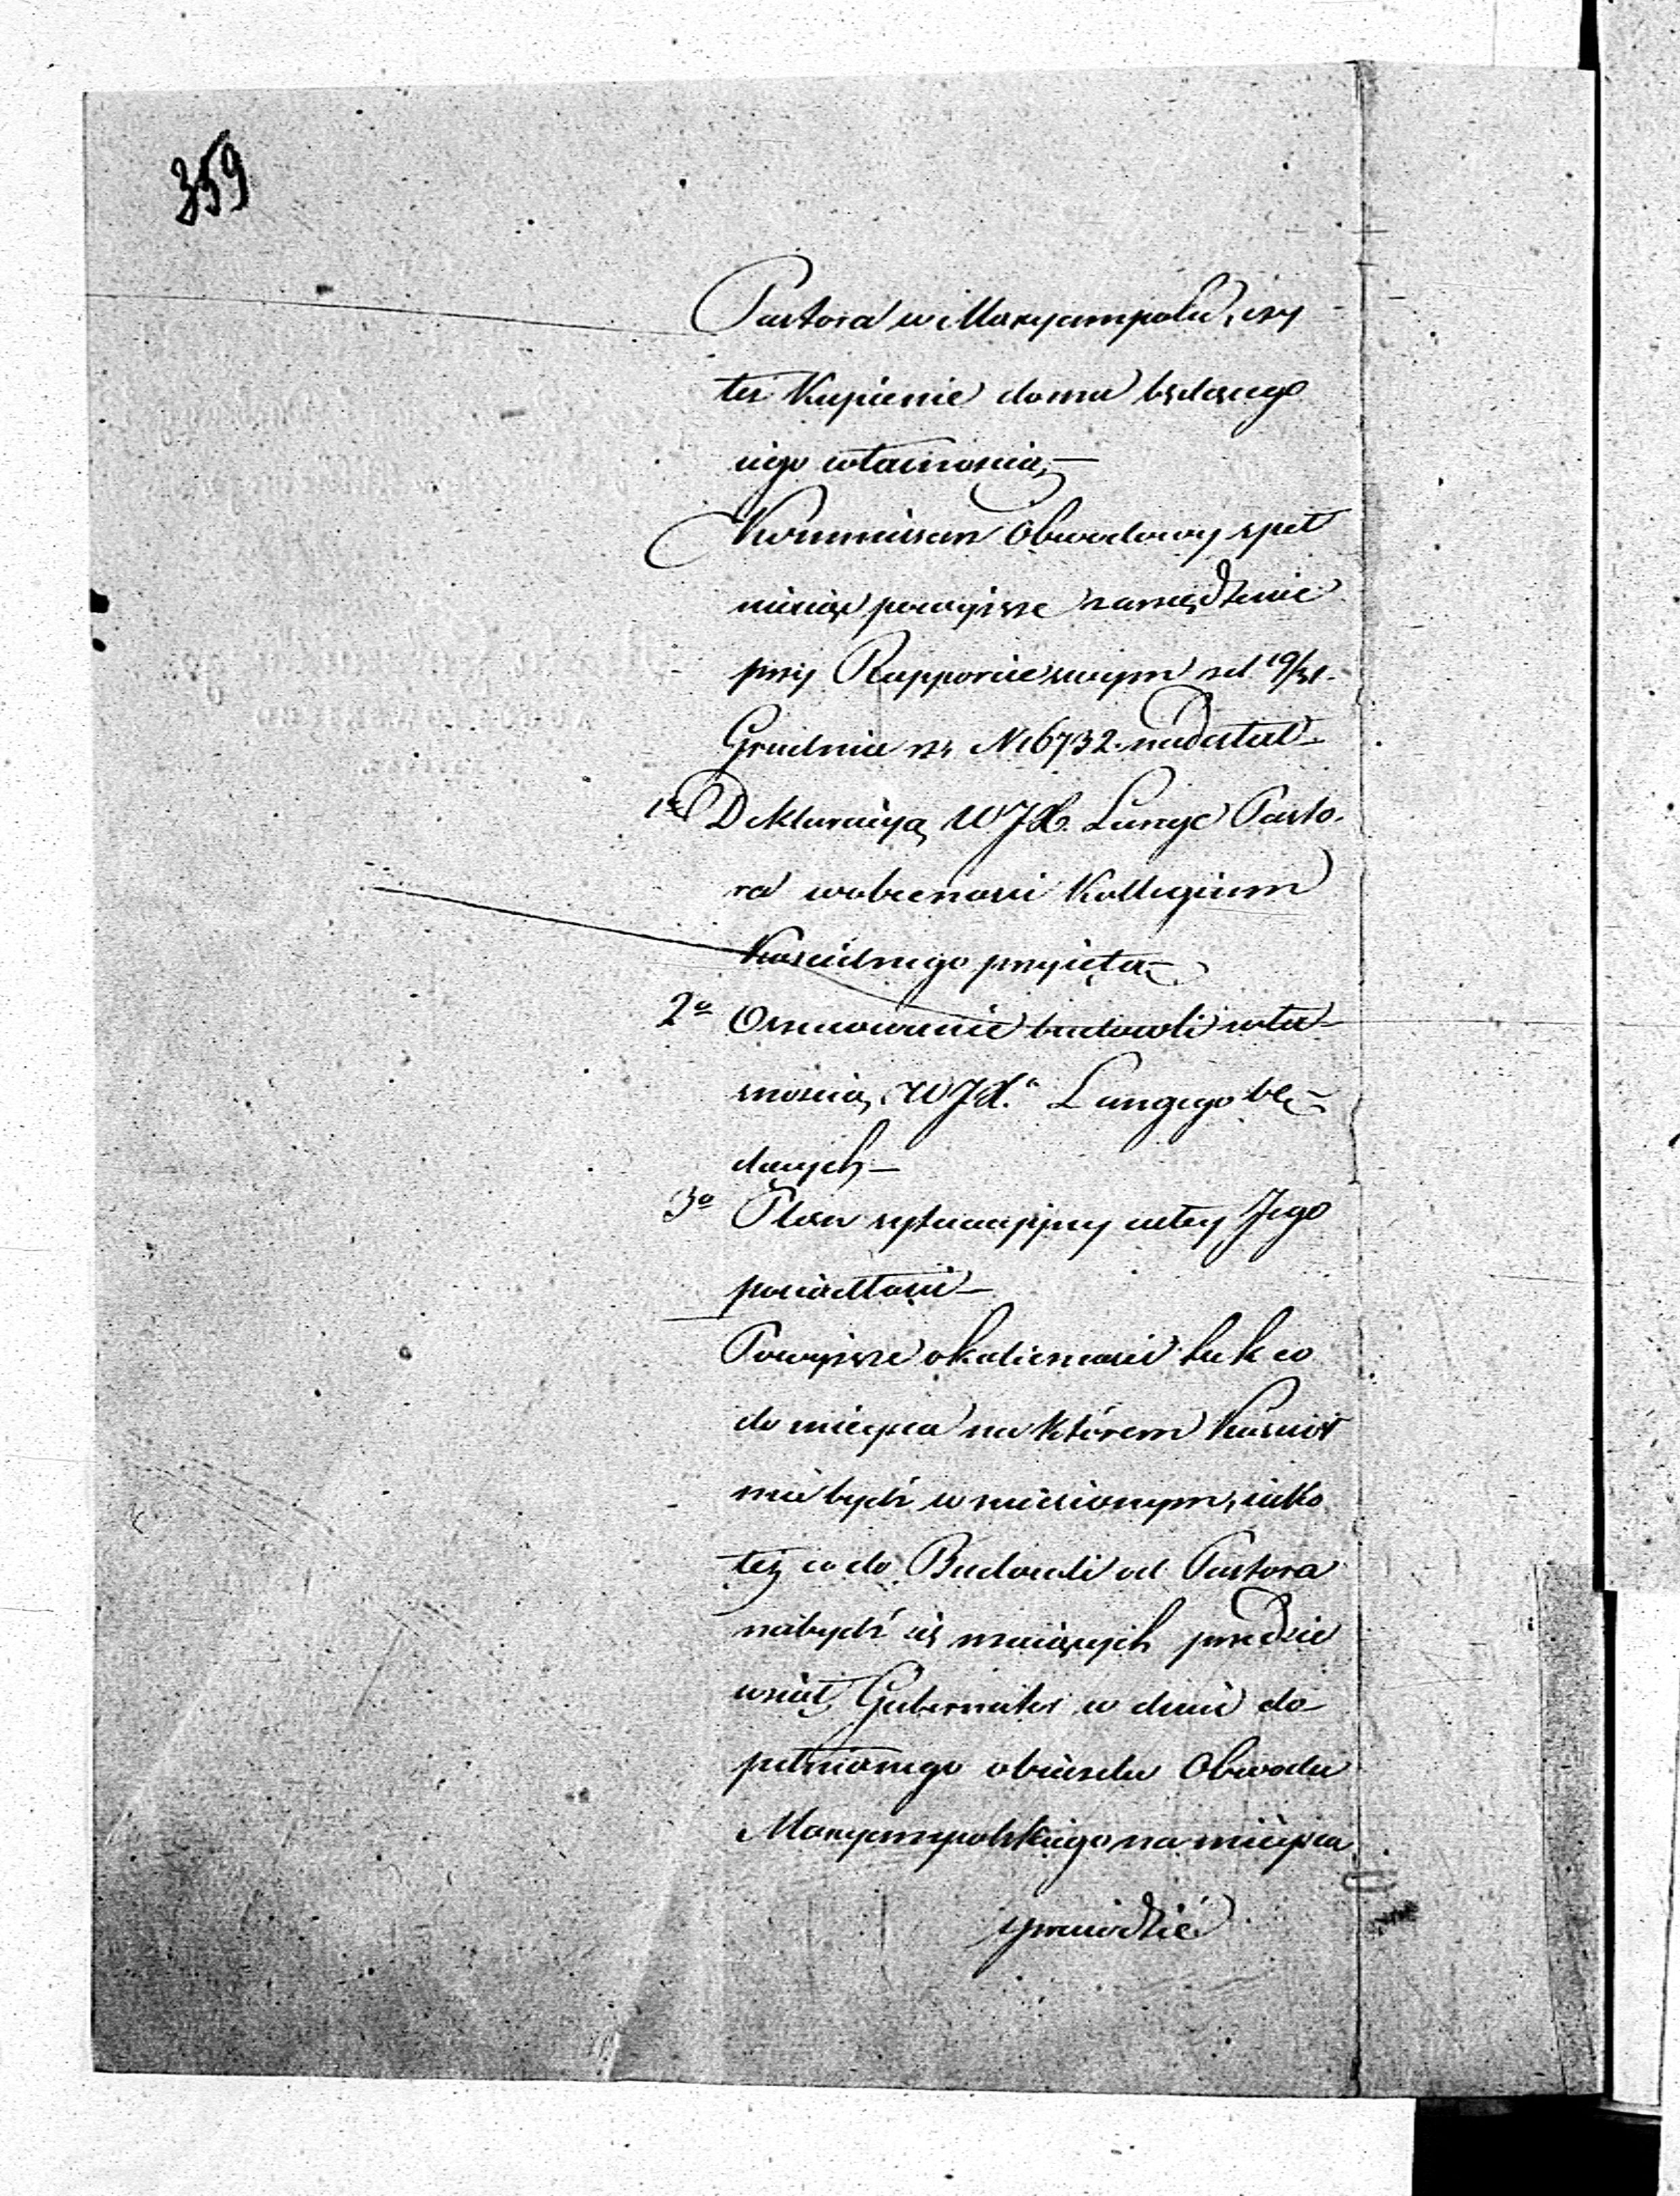 359
Pastora w Maryampolu, czy
też Kupienie domu będącego
iego własnością,—
Kommissarz Obwodowy speł
niaiąc powyższe zarządzenie
przy Rapporcie swym z d 19/31.
Grudnia r. z. N 6732. nadesłał—
1o Deklaracyą WJX. Lange Pasto-
ra w obecności Kollegium
Kościelnego przyięta—
2o Oszacowanie budowli wła-
snością WJX.a Langego bę-
dących—
3o Plan sytuacyjny całey Jego
posiadłości—
Powyższe okoliczności tak co
do mieysca na którem Kościół
ma bydź wzniesionym, iako
też co do Budowli od Pastora
nabydź się maiących przedsie
wziął Gubernator w czasie do
pełnionego obiazdu Obwodu
Maryampolskiego na mieyscu
sprawdzić